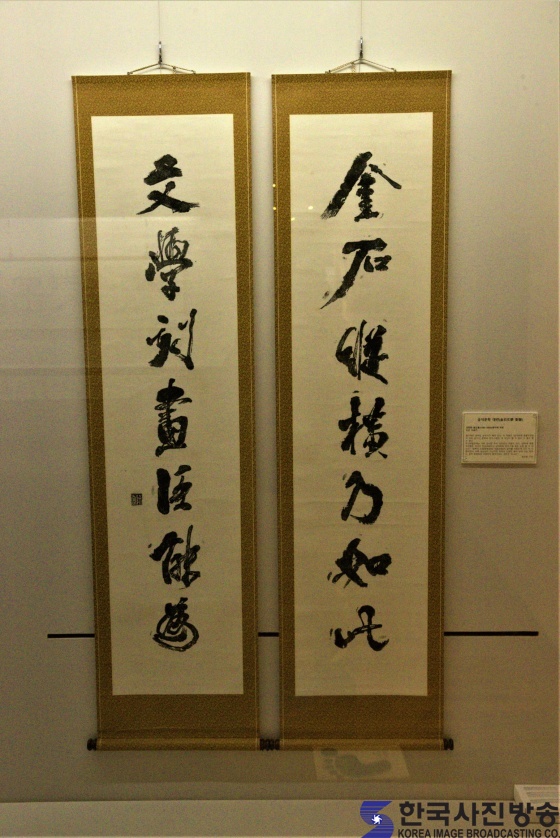 金石縱橫乃如此
文學刻畫臣能為
한국사진방송
KOREA IMAGE BROADCASTING CO